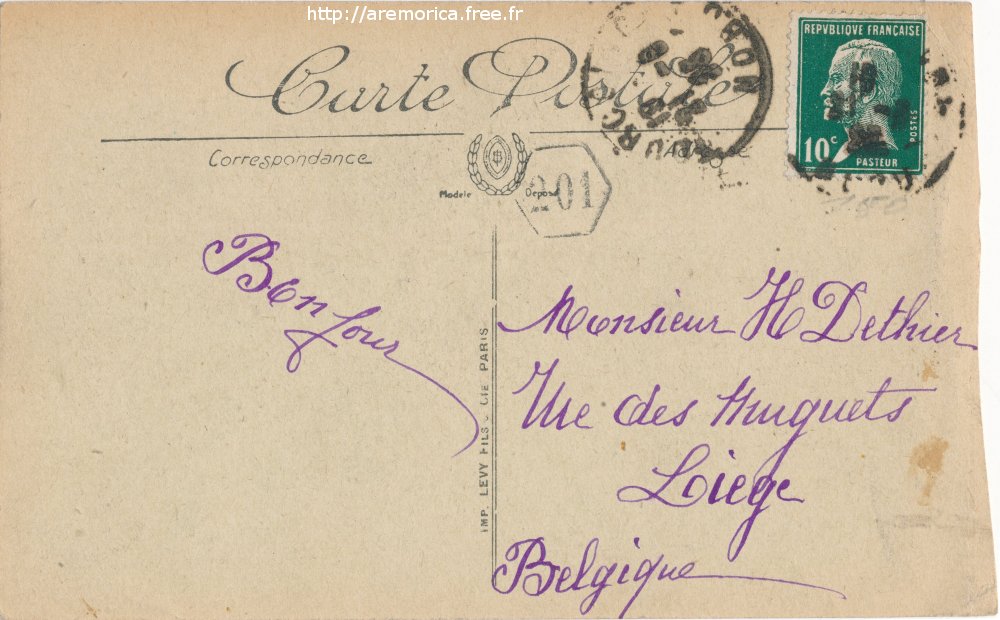 http://aremorica.free.fr
Carte Postale
Correspondance
Modèle Déposé
201
REPVBLIQUE FRANÇAISE
10c
POSTES
PASTEUR
Bonjour
IMP. LEVY FILS & CIE PARIS
Monsieur H Dethier
Rue des Muguets
Liege
Belgique